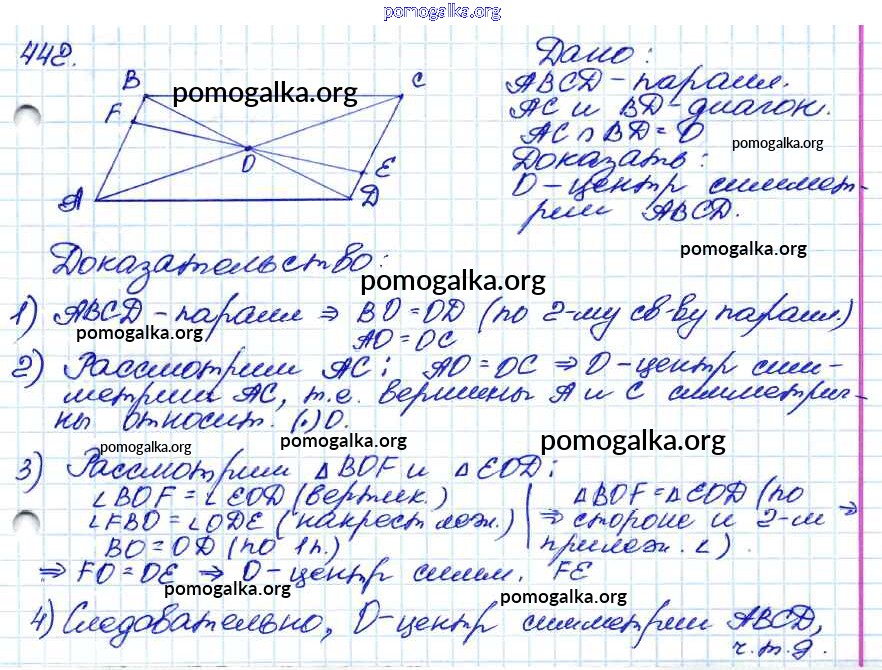 pomogalka.org
442.
B
pomogalka.org
C
F
O
E
A
D
Дано:
ABCD – паралл.
AC и BD – диагон.
AC ∩ BD = O
pomogalka.org
Доказать:
O – центр симмет-
рии ABCD.
pomogalka.org
Доказательство:
pomogalka.org
1) ABCD – паралл ⇒ BO = OD (по 2-му св-ву паралл.)
pomogalka.org
AO = OC
2) Рассмотрим AC: AO = OC ⇒ O – центр сим-
метрии AC, т.е. вершины A и C симметрич-
ны относит. (·) O.
pomogalka.org
pomogalka.org
pomogalka.org
3) Рассмотрим △BOF и △EOD:
∠BOF = ∠EOD (вертик.)
∠FBO = ∠ODE (накрест леж.)
BO = OD (по 1п.)
⇒ △BOF = △EOD (по
стороне и 2-м ⇒
прилеж. ∠).
⇒ FO = OE ⇒ O – центр симм. FE
pomogalka.org
pomogalka.org
4) Следовательно, O – центр симметрии ABCD,
ч.т.д.
pomogalka.org